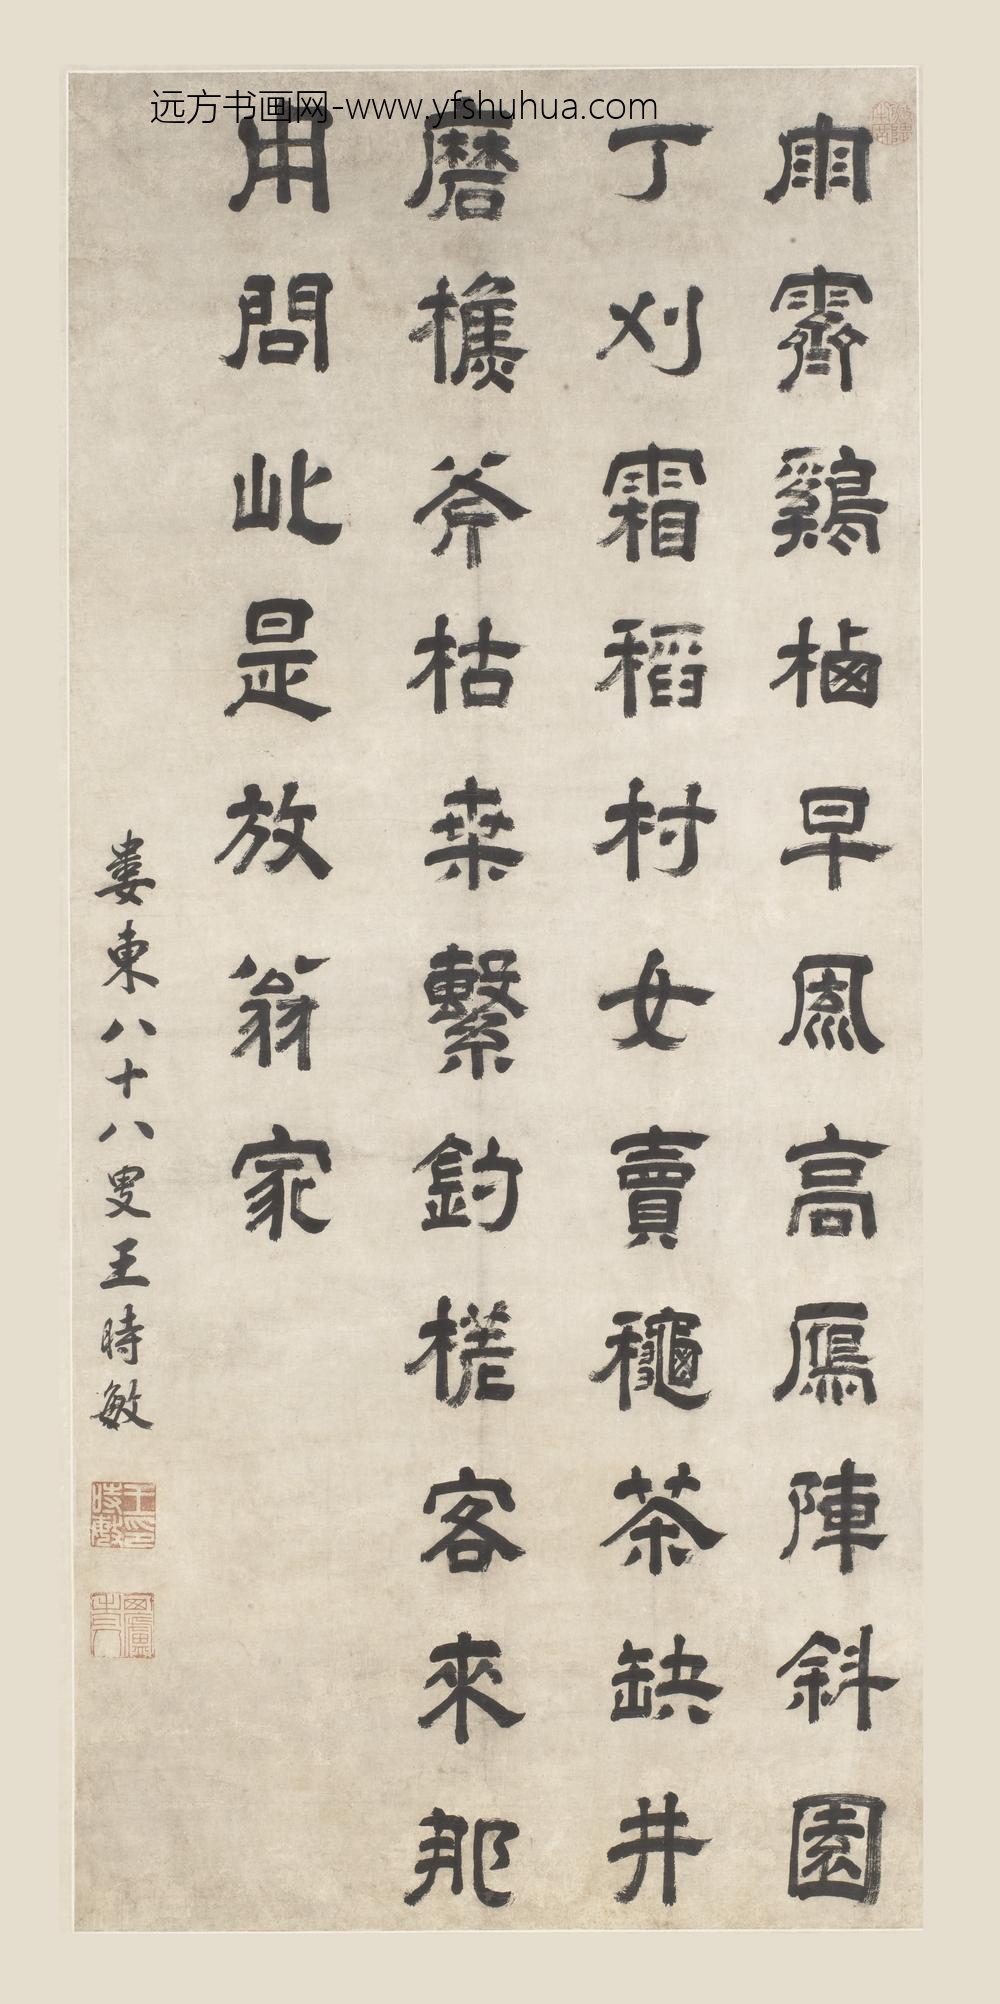 远方书画网-www.yfshuhua.com
雨霽鷄栖早風高鴈陣斜園
丁刈霜稻村女賣穐茶缺井
磨樵斧枯桒繫釣槎客來那
用問此是放翁家
婁東八十八叟王時敏
王時敏印
西廬老人